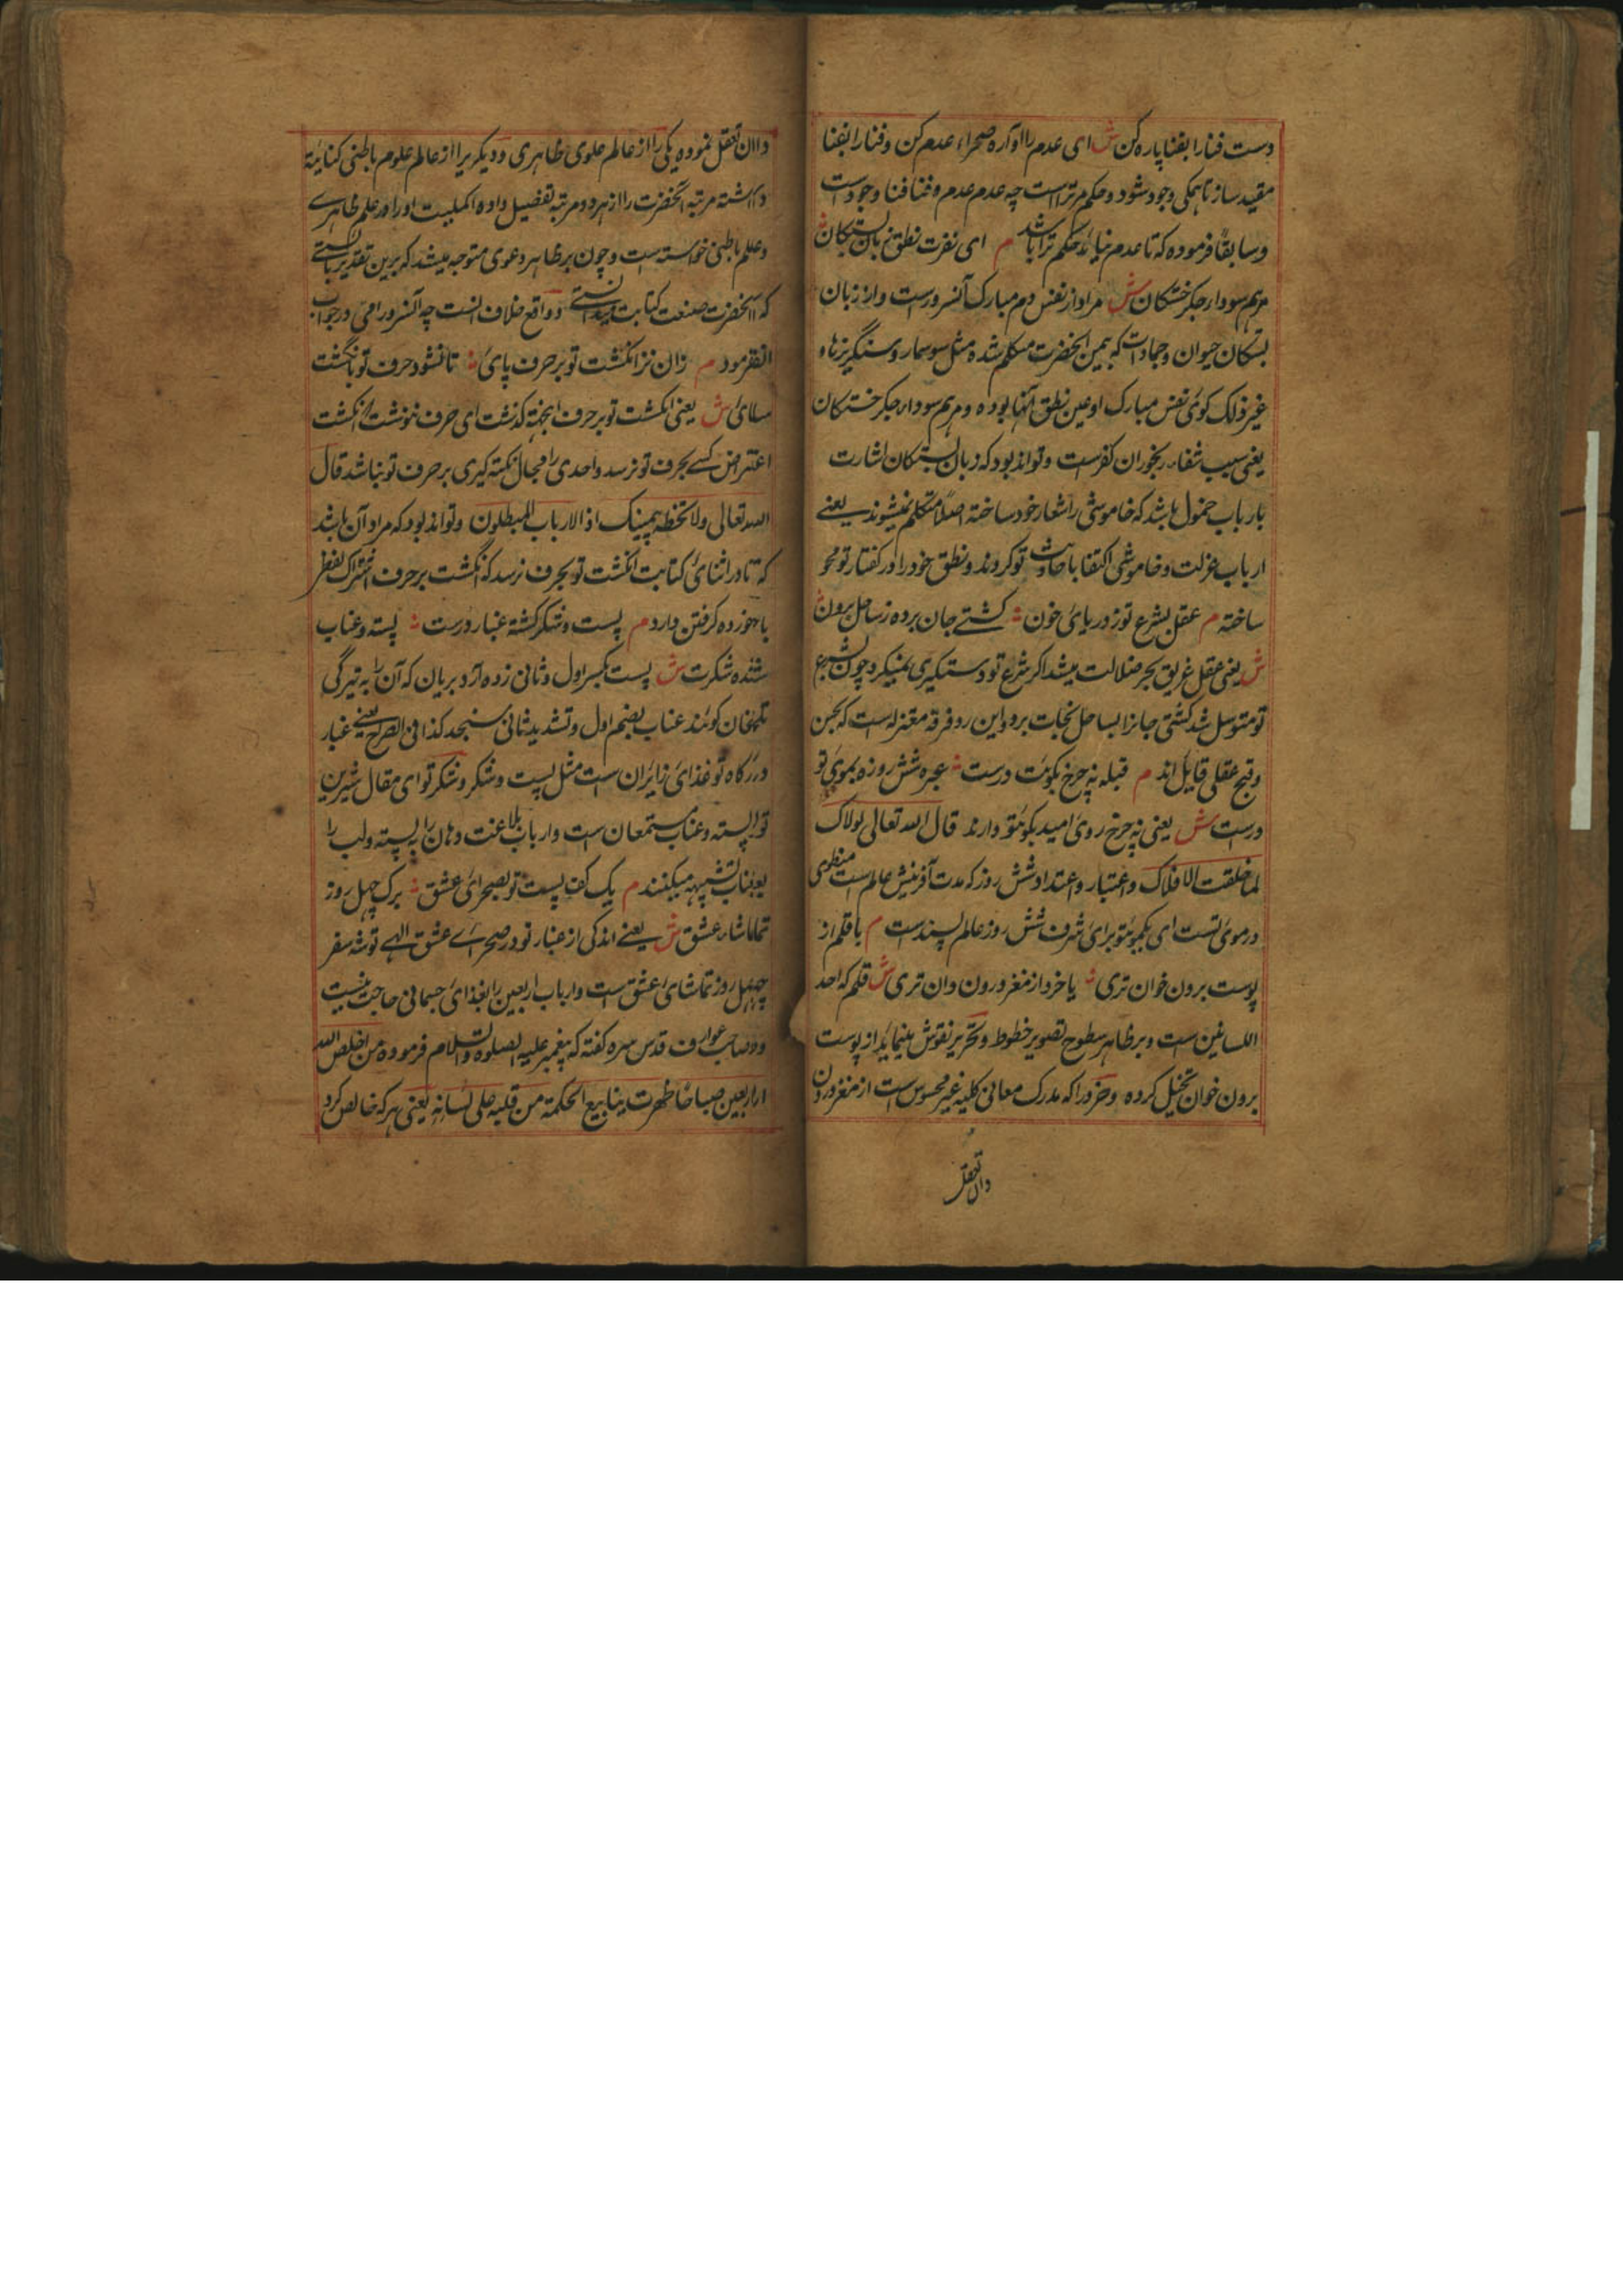 دست فنا را بفنا پاره کن ش ای عدم را آواره صحراء عدم کن و فنا را بفنا
مقید ساز تا همکی وجود شود و حکم تراست چه عدم عدم و فنا فنا وجود است
و سابقاً فرموده که تا عدم نیاید حکم ترا باشد م ای نفرت نطق زبان بستکان
مرهم سودا جکر خستکان ش مراد از نفس دم مبارک آنسرورست و از زبان
بستکان حیوان و جمادات که بیمن آنحضرت متکلم شده مثل سوسمار و سنگریزهاء
غیر ذلک کوئی نفس مبارک او عین نطق آنها بوده و مرهم سودا جکر خستکان
یعنی سبب شفاء رنجوران کفرست و تواند بود که زبان بستکان اشارت
بارباب خمول باشد که خاموشی را شعار خود ساخته اصلا متکلم نمیشوند یعنی
ارباب عزلت و خاموشی اکتفا باحادیث تو کردند و نطق خود را در کفتار تو محو
ساخته م عقل بشرع تو ز دریای خون ؞ کشتی جان برده ز ساحل برون
ش یعنی عقل غریق بحر ضلالت میشد اکر شرع تو دستکیری نمیکرد چون بشرع
تو متوسل شد کشتی جانرا بساحل نجات برد و این رد فرقه معتزله است که بحسن
و قبح عقلی قایل اند م قبله نه چرخ بکویت درست ؞ عبره شش روزه بموی تو
درست ش یعنی نه چرخ روی امید بکوئتو دارند قال الله تعالی لولاک
لما خلقت الافلاک و اعتبار و اعتداد شش روز که مدت آفرینش عالم است منطوی
در موی تست ای یکموئتو برای شرف شش روز عالم پسندست م با قلم از
پوست برون خوان تری ؞ یا خرد از مغز درون دان تری ش قلم که احد
اللسانین است و بر ظاهر سطوح تصویر خطوط و تحریر نقوش مینماید از پوست
برون خوان تخیل کرده و خرد را که مدرک معانی کلیه غیر محسوس است از مغز درون
دان تعقل
دان تعقل نموده یکی را از عالم علوی ظاهری و دیکریرا از عالم علوم باطنی کنایة
داشته مرتبه آنحضرت را از هر دو مرتبه تفضیل داده اکملیت او را در علم ظاهری
و علم باطنی خواسته است و چون بر ظاهر دعوی متوجه میشد که برین تقدیر بایستی
که آنحضرت صنعت کتابت میدانستی و واقع خلاف انست چه آنسرور امی در جواب
انفرمود م زان نزد انکشت تو بر حرف پای ؞ تا نشود حرف تو انکشت
سای ش یعنی انکشت تو بر حرف ابجد نه کذشت ای حرف ننوشت تا انکشت
اعتراض کسی بحرف تو نرسد و احدی را مجال نکته کیری بر حرف تو نباشد قال
الله تعالی ولا تخطه بیمینک اذا لارتاب المبطلون و تواند بود که مراد آن باشد
که تا در اثنای کتابت انکشت تو بحرف نرسد که انکشت بر حرف اشتراک لفظ
با خورده کرفتن دارد م پست و شکر کشته غبار درت ؞ پسته و عناب
شده شکرت ش پست بکسر اول و ثانی زده آرد بریان که آن را به ترکی
تلخان کویند عناب بضم اول و تشدید ثانی سنجد کذا فی الصراح یعنی غبار
درکاه تو غذای زایران است مثل پست و شکر و شکر تو ای مقال شیرین
تو پسته و عناب مستمعان است و ارباب بلاغت دهان را به پسته و لب را
بعناب تشبیه میکنند م یک کف پست تو بصحرای عشق ؞ برک چهل روز
تماشاء عشق ش یعنی اندکی از غبار تو در صحرای عشق الهی توشه سفر
چهل روز تماشای عشق است و ارباب اربعین را بغذای جسمانی حاجت نیست
و صاحب عوارف قدس سره کفته که پیغمبر علیه الصلوة والسلام فرموده من اخلص الله
اربعین صباحا ظهرت ینابیع الحکمة من قلبه علی لسانه یعنی هر که خالص کرد